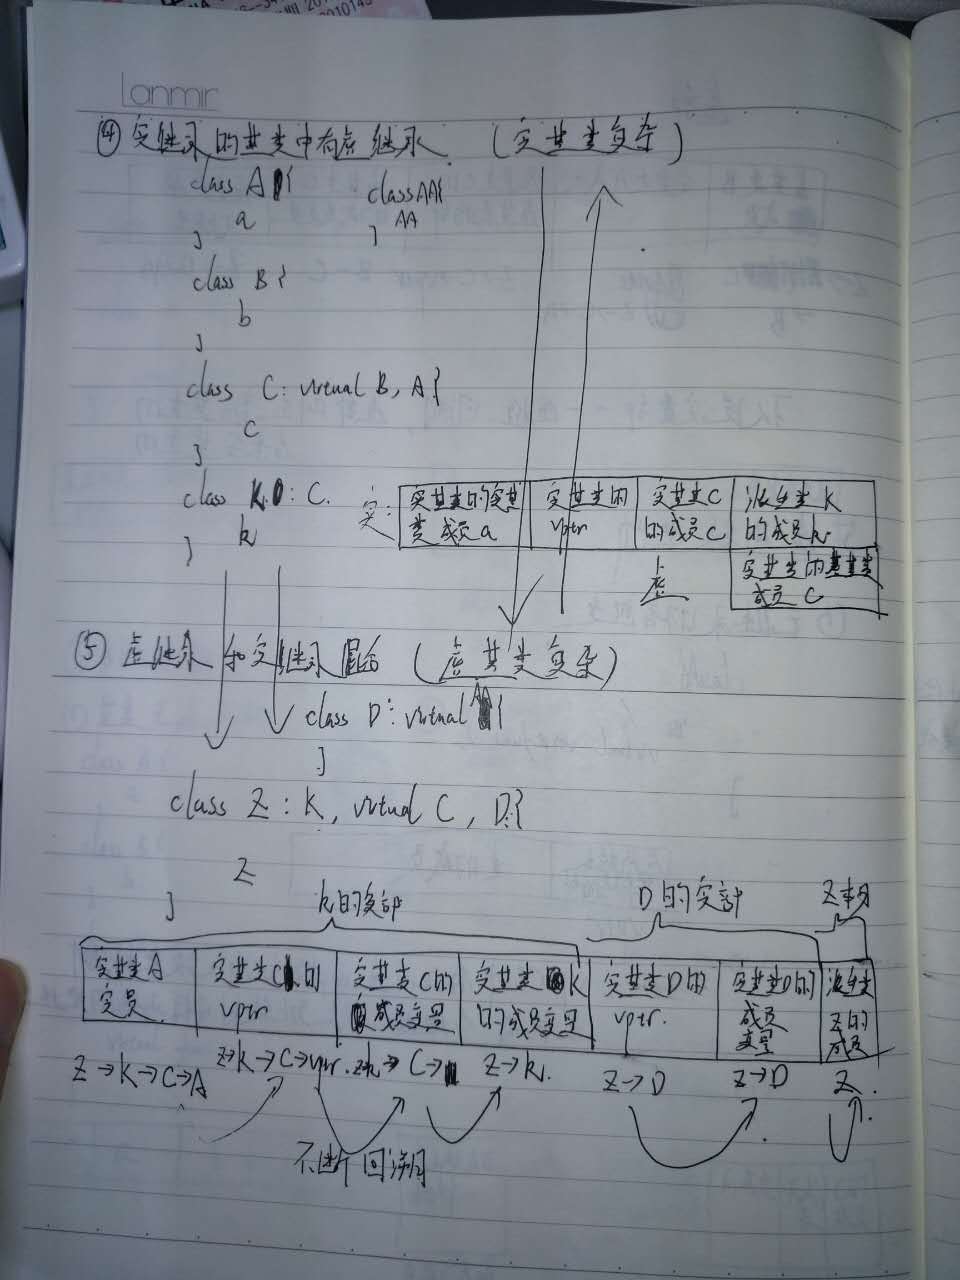 Lanmir
④ 实继承的基类中有虚继承 (实基类复杂)
class A {
a
}
class AA{
AA
}
class B {
b
}
class C: virtual B, A{
c
}
class K : C.
k
}
实:
实基类的实基类成员a
实基类的vptr
实基类C的成员c
派生类K的成员k
虚
实基类的基类成员 C
⑤ 虚继承和实继承混合 (虚基类复杂)
class D: virtual AA{
}
class Z : K, virtual C, D{
Z
}
k的实部
D的实部
Z本身
实基类A
实员
实基类C的vptr
实基类C的成员变量
实基类K的成员变量
实基类D的vptr.
实基类D的成员变量
派生类Z的成员
Z→K→C→A
Z→K→C→vptr.
Z→K→C→
Z→K.
Z→D
Z→D
Z.
不断回溯